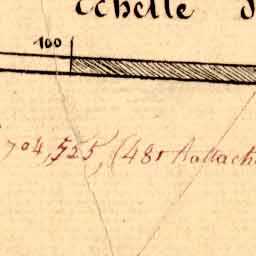 Echelle
100
704,525, (481 Rattach